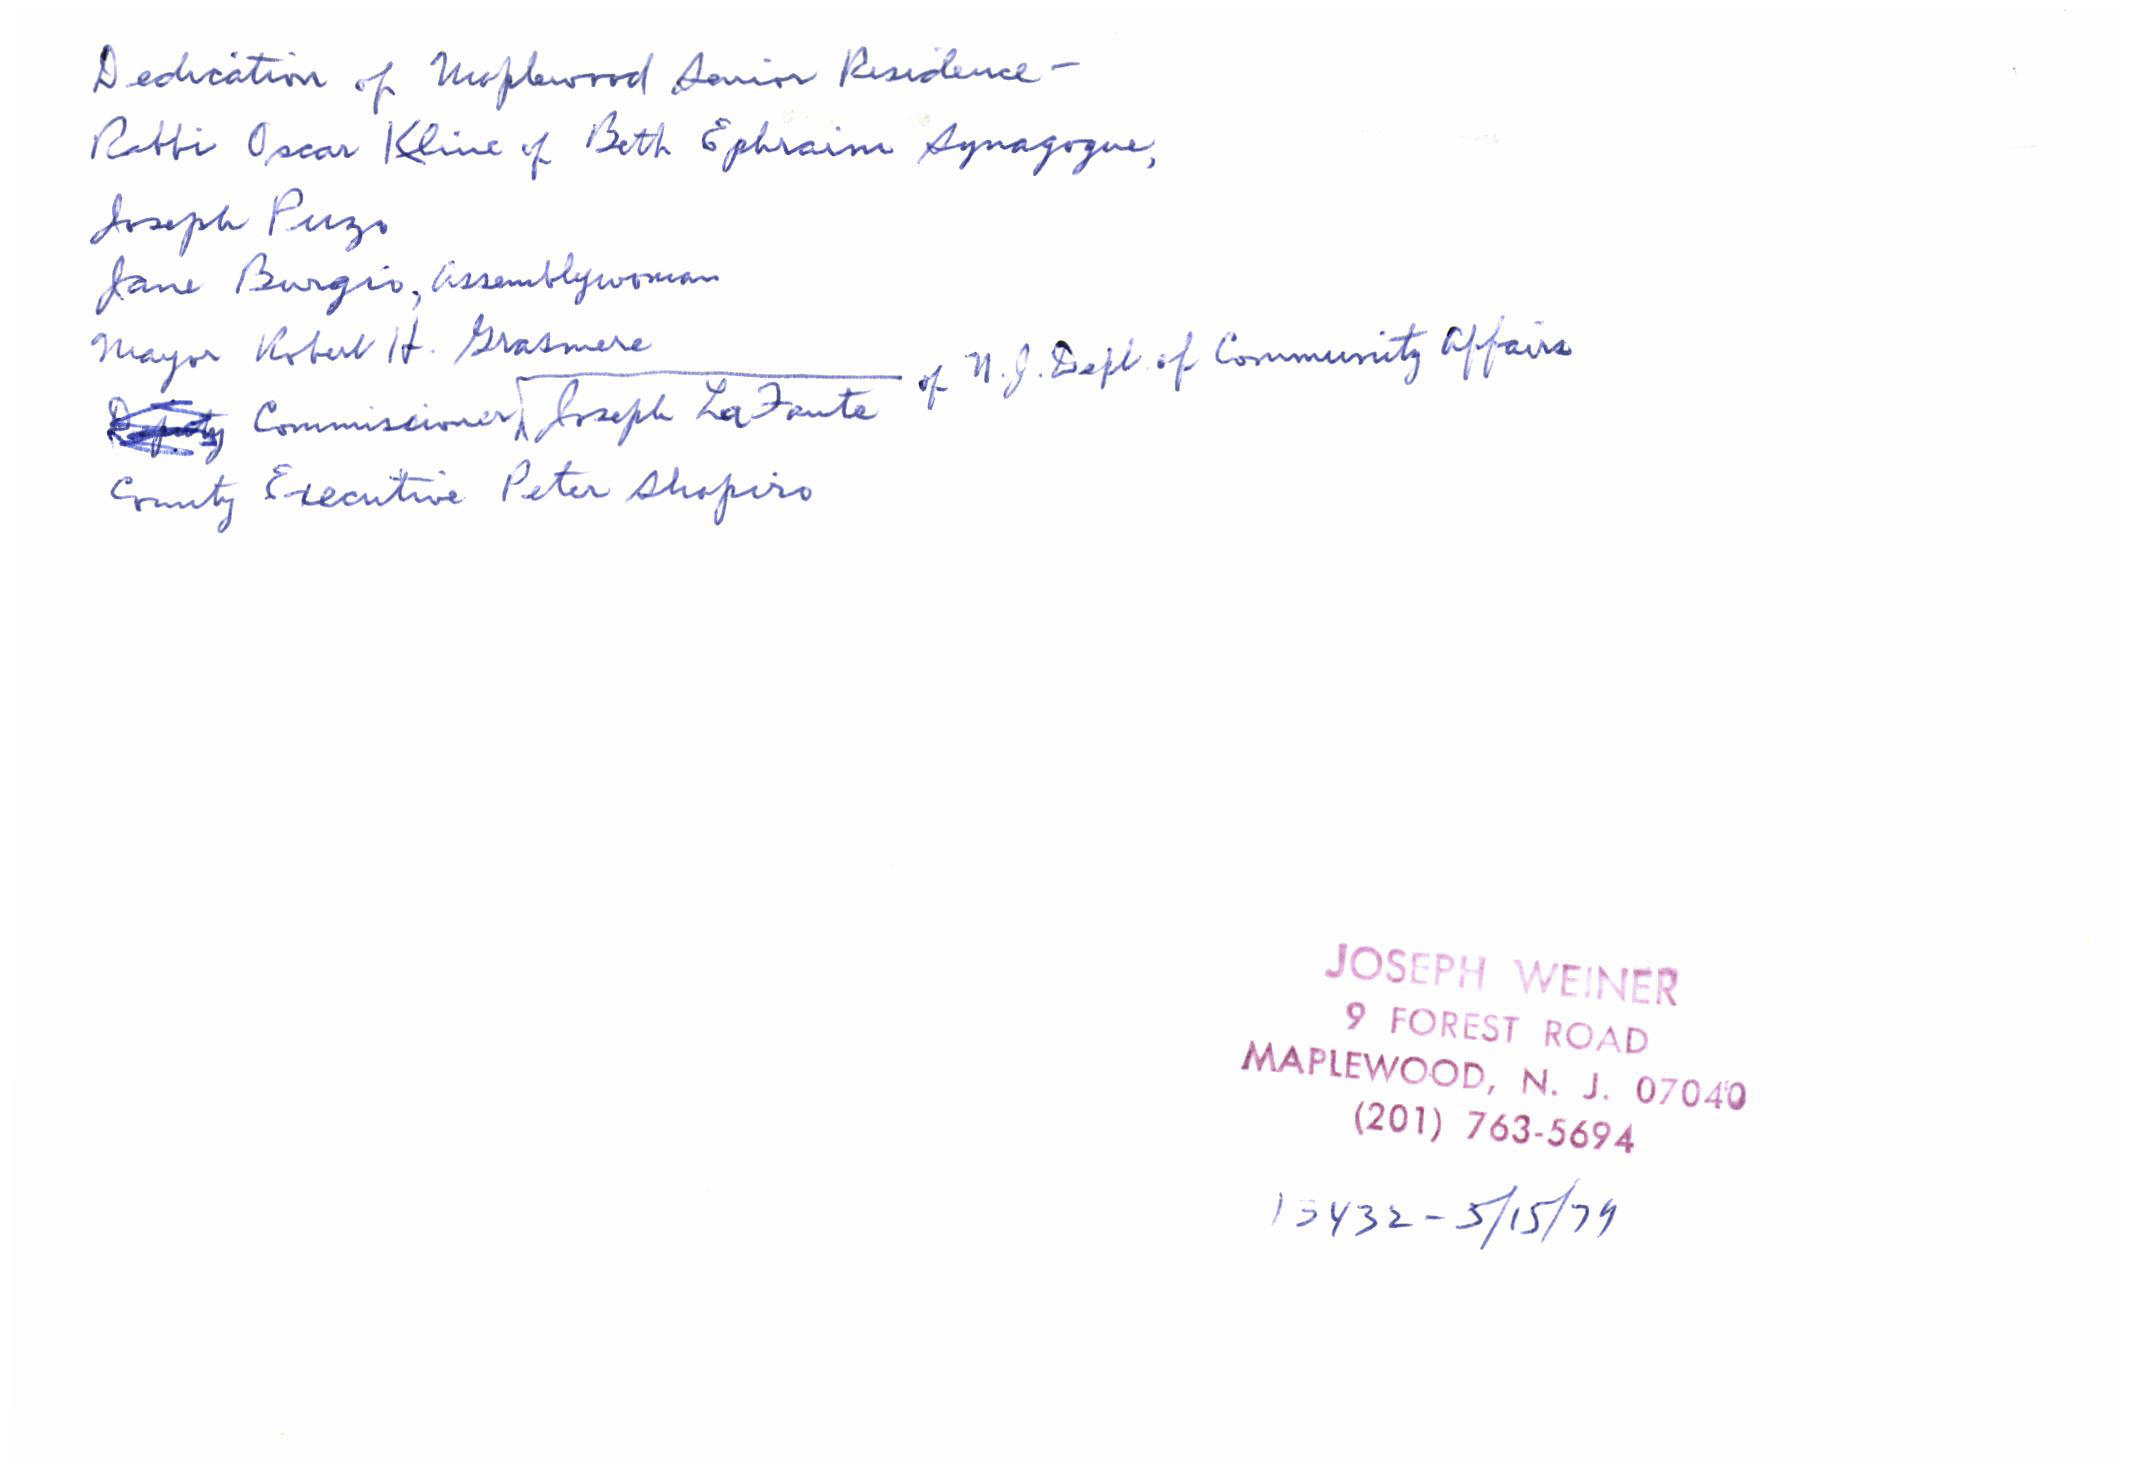 Dedication of Maplewood Senior Residence -
Rabbi Oscar Kline of Beth Ephraim Synagogue,
Joseph Puzo
Jane Burgio, Assemblywoman
Mayor Robert H. Grasmere
Deputy Commissioner, Joseph LaFante of N.J. Dept. of Community Affairs
County Executive Peter Shapiro
JOSEPH WEINER
9 FOREST ROAD
MAPLEWOOD, N. J. 07040
(201) 763-5694
13432 - 5/15/79